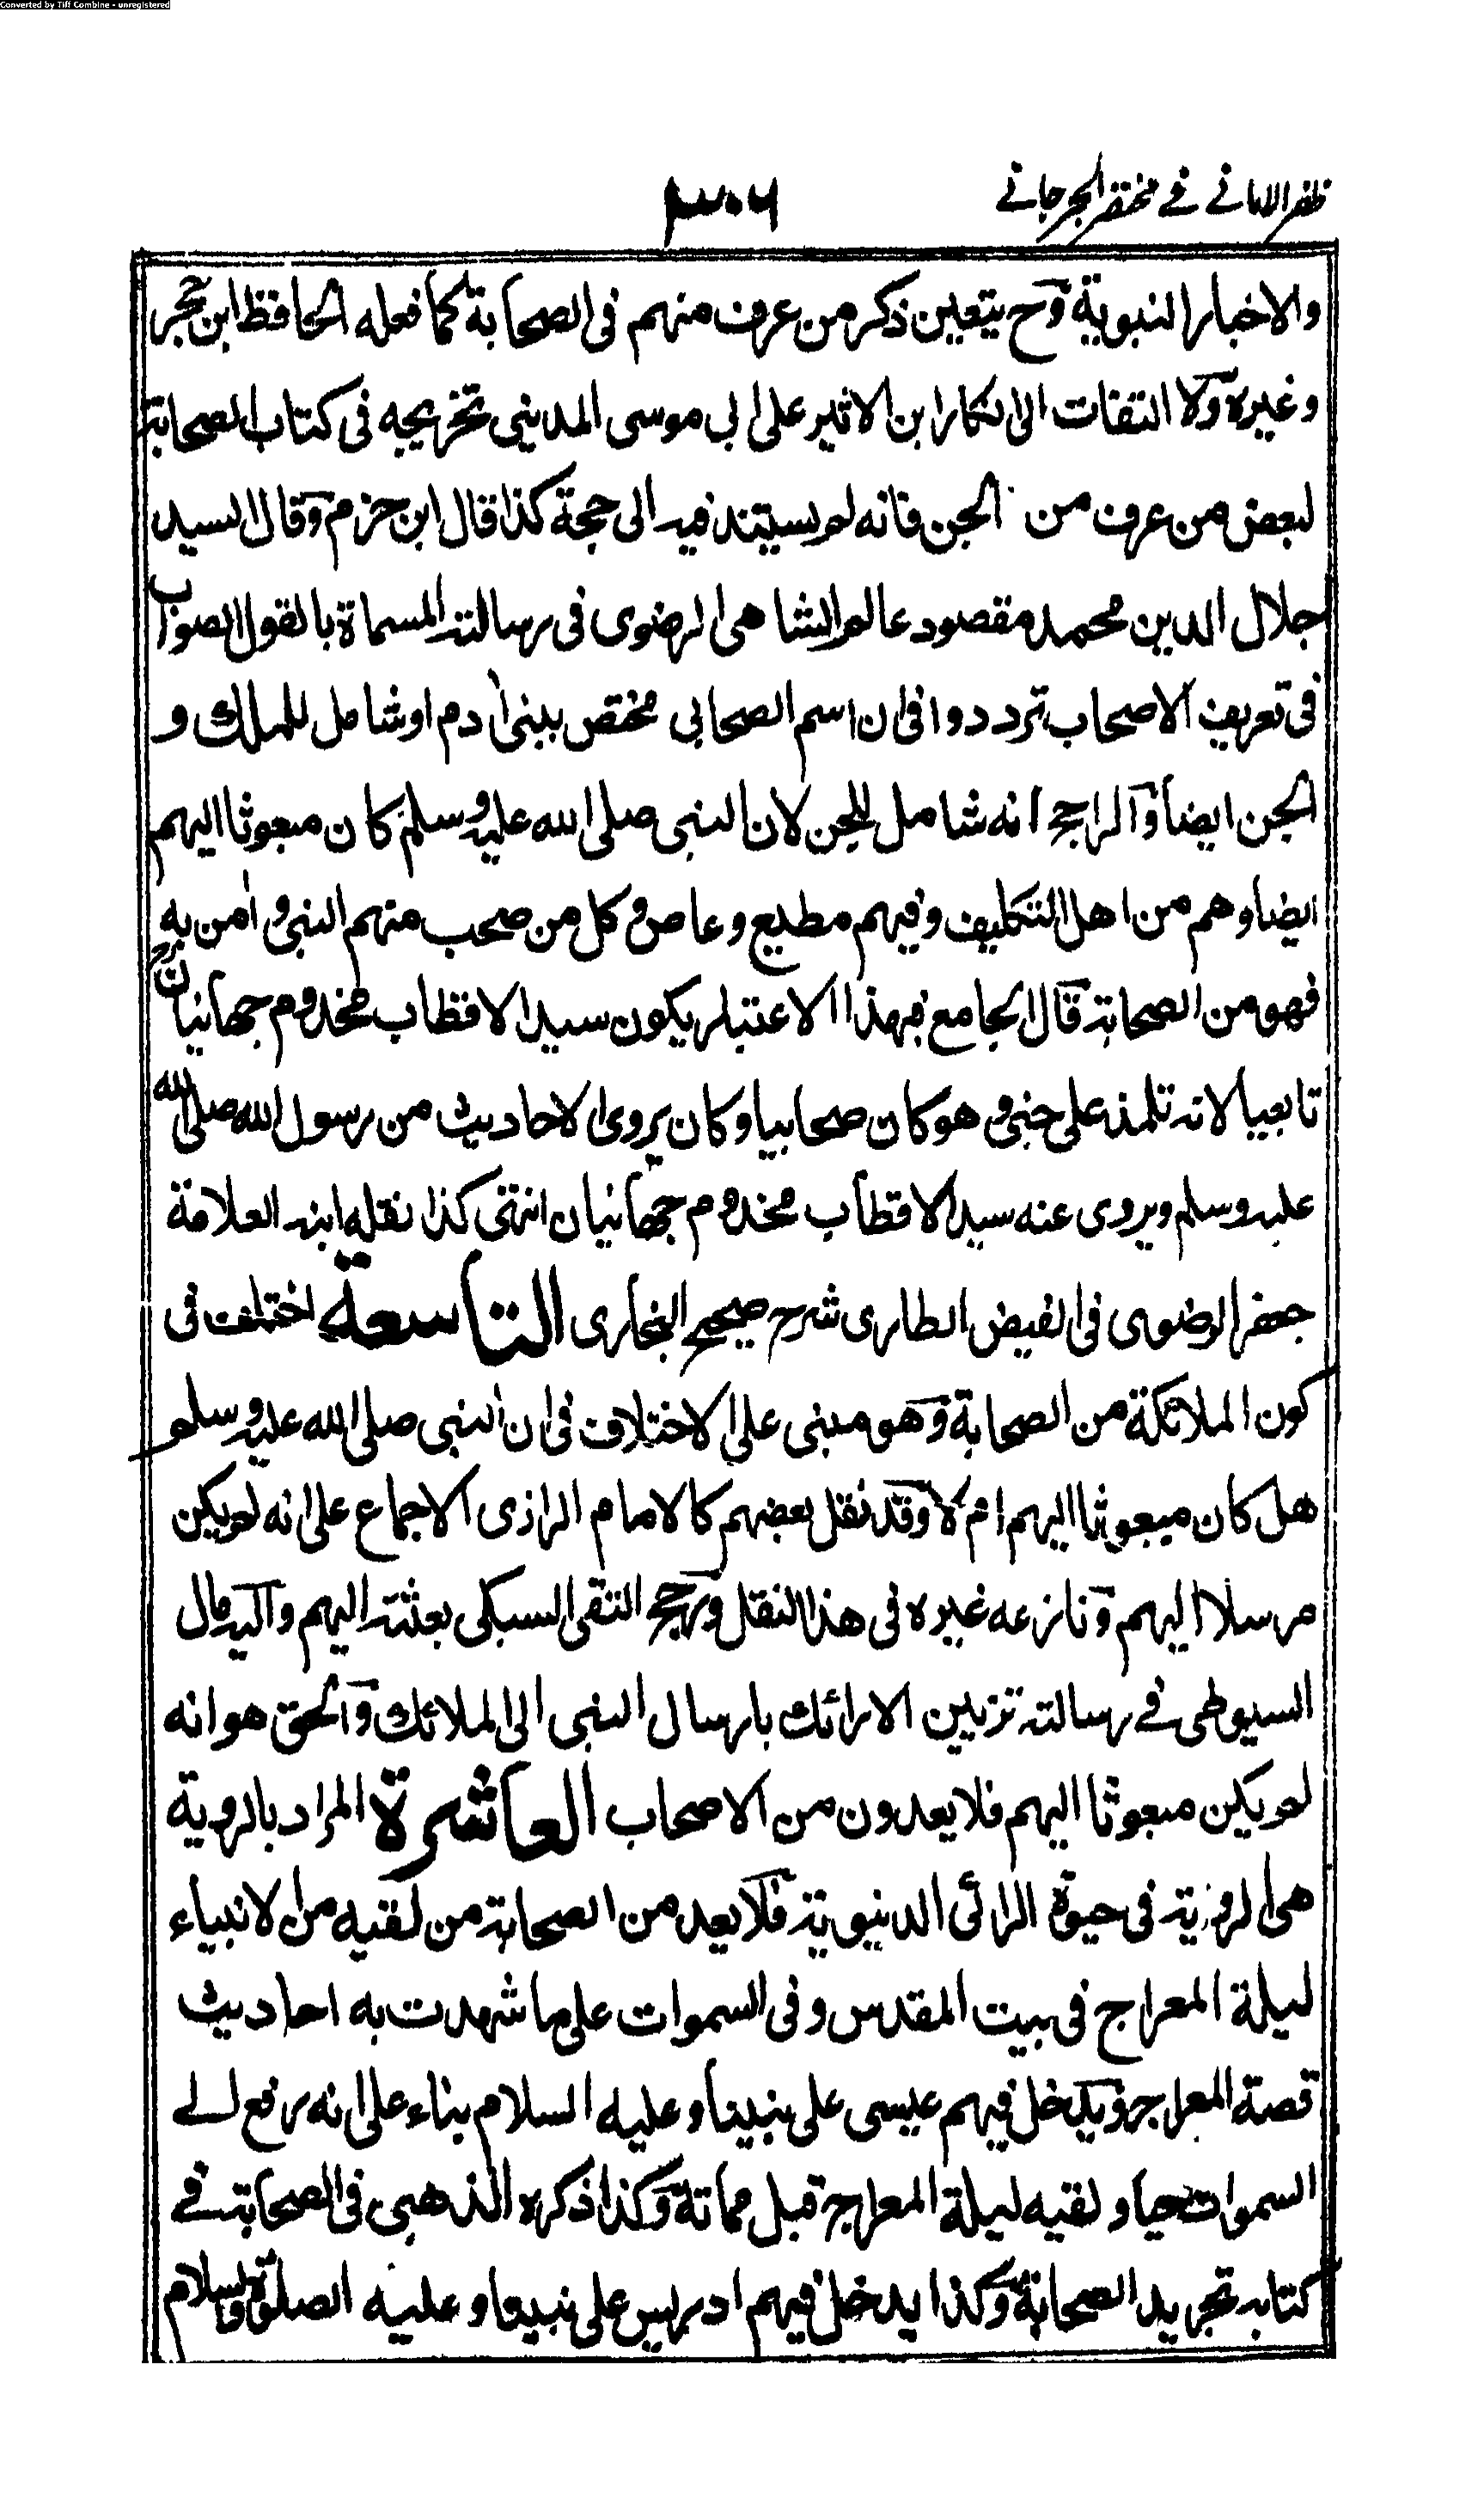 Converted by Tiff Combine - unregistered
ظفر الاماني في مختصر الجرجاني
٣٠٦
والاخبار النبوية وح يتعين ذكر من عرف منهم فى الصحابة كما فعله الحافظ ابن حجر
وغيره ولا التفات الى انكار ابن الاثير على ابى موسى المدينى تخريجه فى كتاب الصحابة
لبعض من عرف من الجن فانه لم يستند فيه الى حجة كذا قال ابن حزم وقال السيد
جلال الدين محمد مقصود عالم الشاهى الرضوى فى رسالته المسماة بالقول الصواب
فى تعريف الاصحاب ترددوا فى ان اسم الصحابى مختص ببنى اٰدم او شامل للملك و
الجن ايضا والراجح انه شامل للجن لان النبى صلى الله عليه وسلم كان مبعوثا اليهم
ايضا وهم من اهل التكليف وفيهم مطيع وعاص وكل من صحب منهم النبى واٰمن به
فهو من الصحابة قال الجامع فبهذا الاعتبار يكون سيد الاقطاب مخدوم جهانيان رح
تابعيا لانه تلمذ على جنى وهو كان صحابيا وكان يروى الاحاديث من رسول الله صلى الله
عليه وسلم ويروى عنه سيد الاقطاب مخدوم جهانيان انتهى كذا نقله ابنه العلامة
جعفر الرضوى فى الفيض الطارى شرح صحيح البخارى التاسعة اختلف فى
كون الملائكة من الصحابة وهو مبنى على الاختلاف فى ان النبى صلى الله عليه وسلم
هل كان مبعوثا اليهم ام لا وقد نقل بعضهم كالامام الرازى الاجماع على انه لم يكن
مرسلا اليهم ونازعه غيره فى هذا النقل ورجح التقى السبكى بعثته اليهم واليه مال
السيوطى فى رسالته تزيين الارائك بارسال النبى الى الملائك والحق هو انه
لم يكن مبعوثا اليهم فلا يعدون من الاصحاب العاشرة المراد بالروية
هى الروية فى حيوة الرائى الدنيوية فلا يعد من الصحابة من لقيه من الانبياء
ليلة المعراج فى بيت المقدس وفى السموات على ما شهدت به احاديث
قصة المعراج ويدخل فيهم عيسى على نبينا وعليه السلام بناء على انه رفع الى
السموات حيا ولقيه ليلة المعراج قبل مماته وكذا ذكره الذهبى فى الصحابة فى
كتابه تجريد الصحابة وكذا يدخل فيهم ادريس على نبينا وعليه الصلوة والسلام